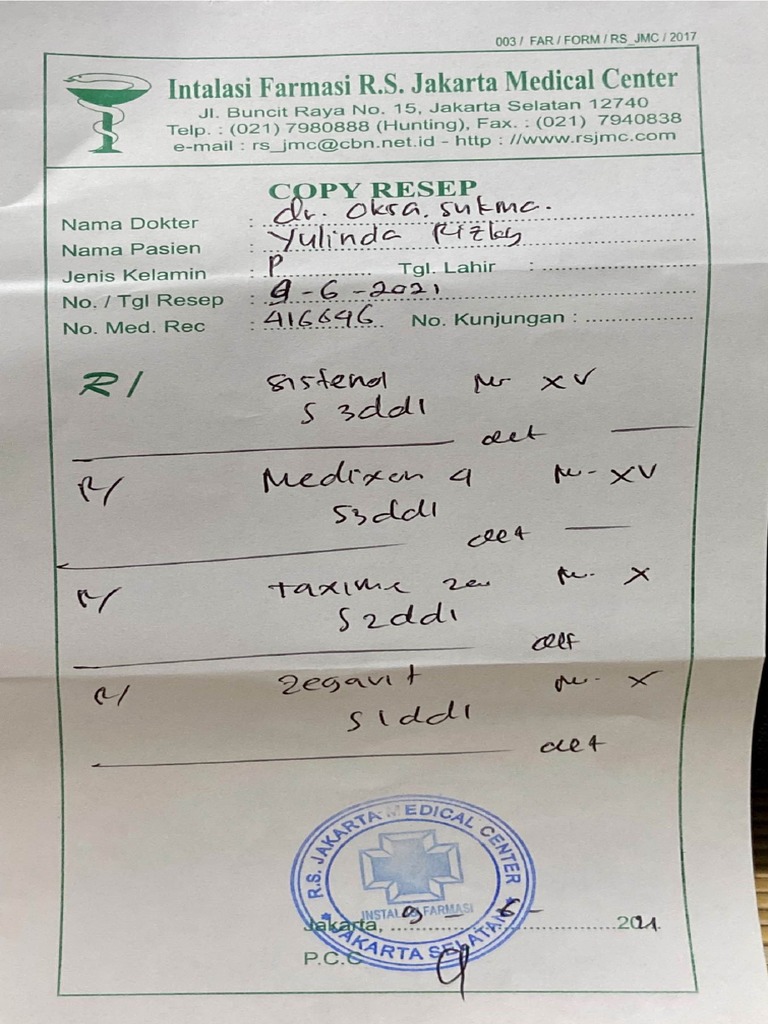 003 / FAR / FORM / RS_JMC / 2017
Intalasi Farmasi R.S. Jakarta Medical Center
Jl. Buncit Raya No. 15, Jakarta Selatan 12740
Telp. : (021) 7980888 (Hunting), Fax. : (021) 7940838
e-mail : rs_jmc@cbn.net.id - http : //www.rsjmc.com
COPY RESEP
Nama Dokter : dr. Oksa. Sukma.
Nama Pasien : Yulinda Rizky
Jenis Kelamin : P Tgl. Lahir :
No. / Tgl Resep : 9-6-2021
No. Med. Rec : 416646 No. Kunjungan :
R/ sistenol XV
S 3dd1
det
R/ Medixon 4 XV
S3dd1
det
R/ taxime X
S2dd1
det
R/ Zegavit X
S1dd1
det
R.S. JAKARTA MEDICAL CENTER
INSTALASI FARMASI
JAKARTA SELATAN
Jakarta, 9 - 6 - 2021
P.C.C